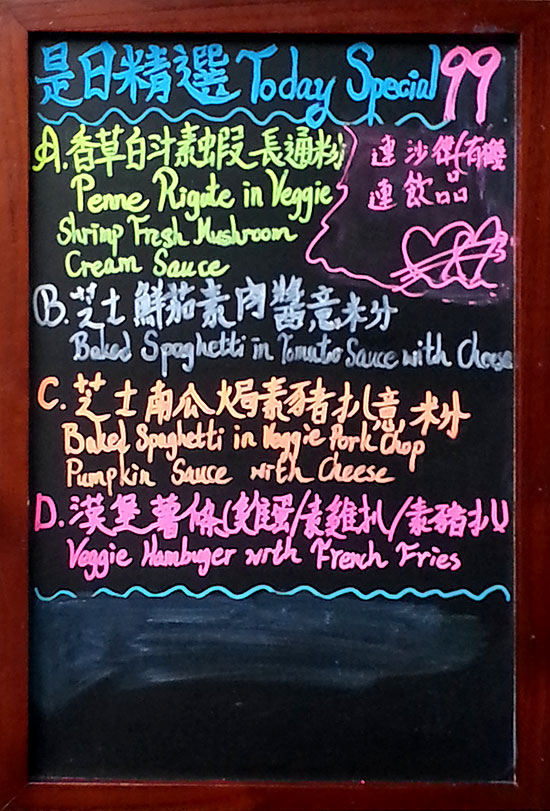 是日精選 Today Special 99
連沙律(有機)
連飲品
A.香草白汁素蝦長通粉
Penne Rigate in Veggie
Shrimp Fresh Mushroom
Cream Sauce
B.芝士鮮茄素肉醬意粉
Baked Spaghetti in Tomato Sauce with Cheese
C.芝士南瓜焗素豬扒意粉
Baked Spaghetti in Veggie Pork Chop
Pumpkin Sauce with Cheese
D.漢堡薯條(雞蛋/素雞扒/素豬扒)
Veggie Hambuger with French Fries